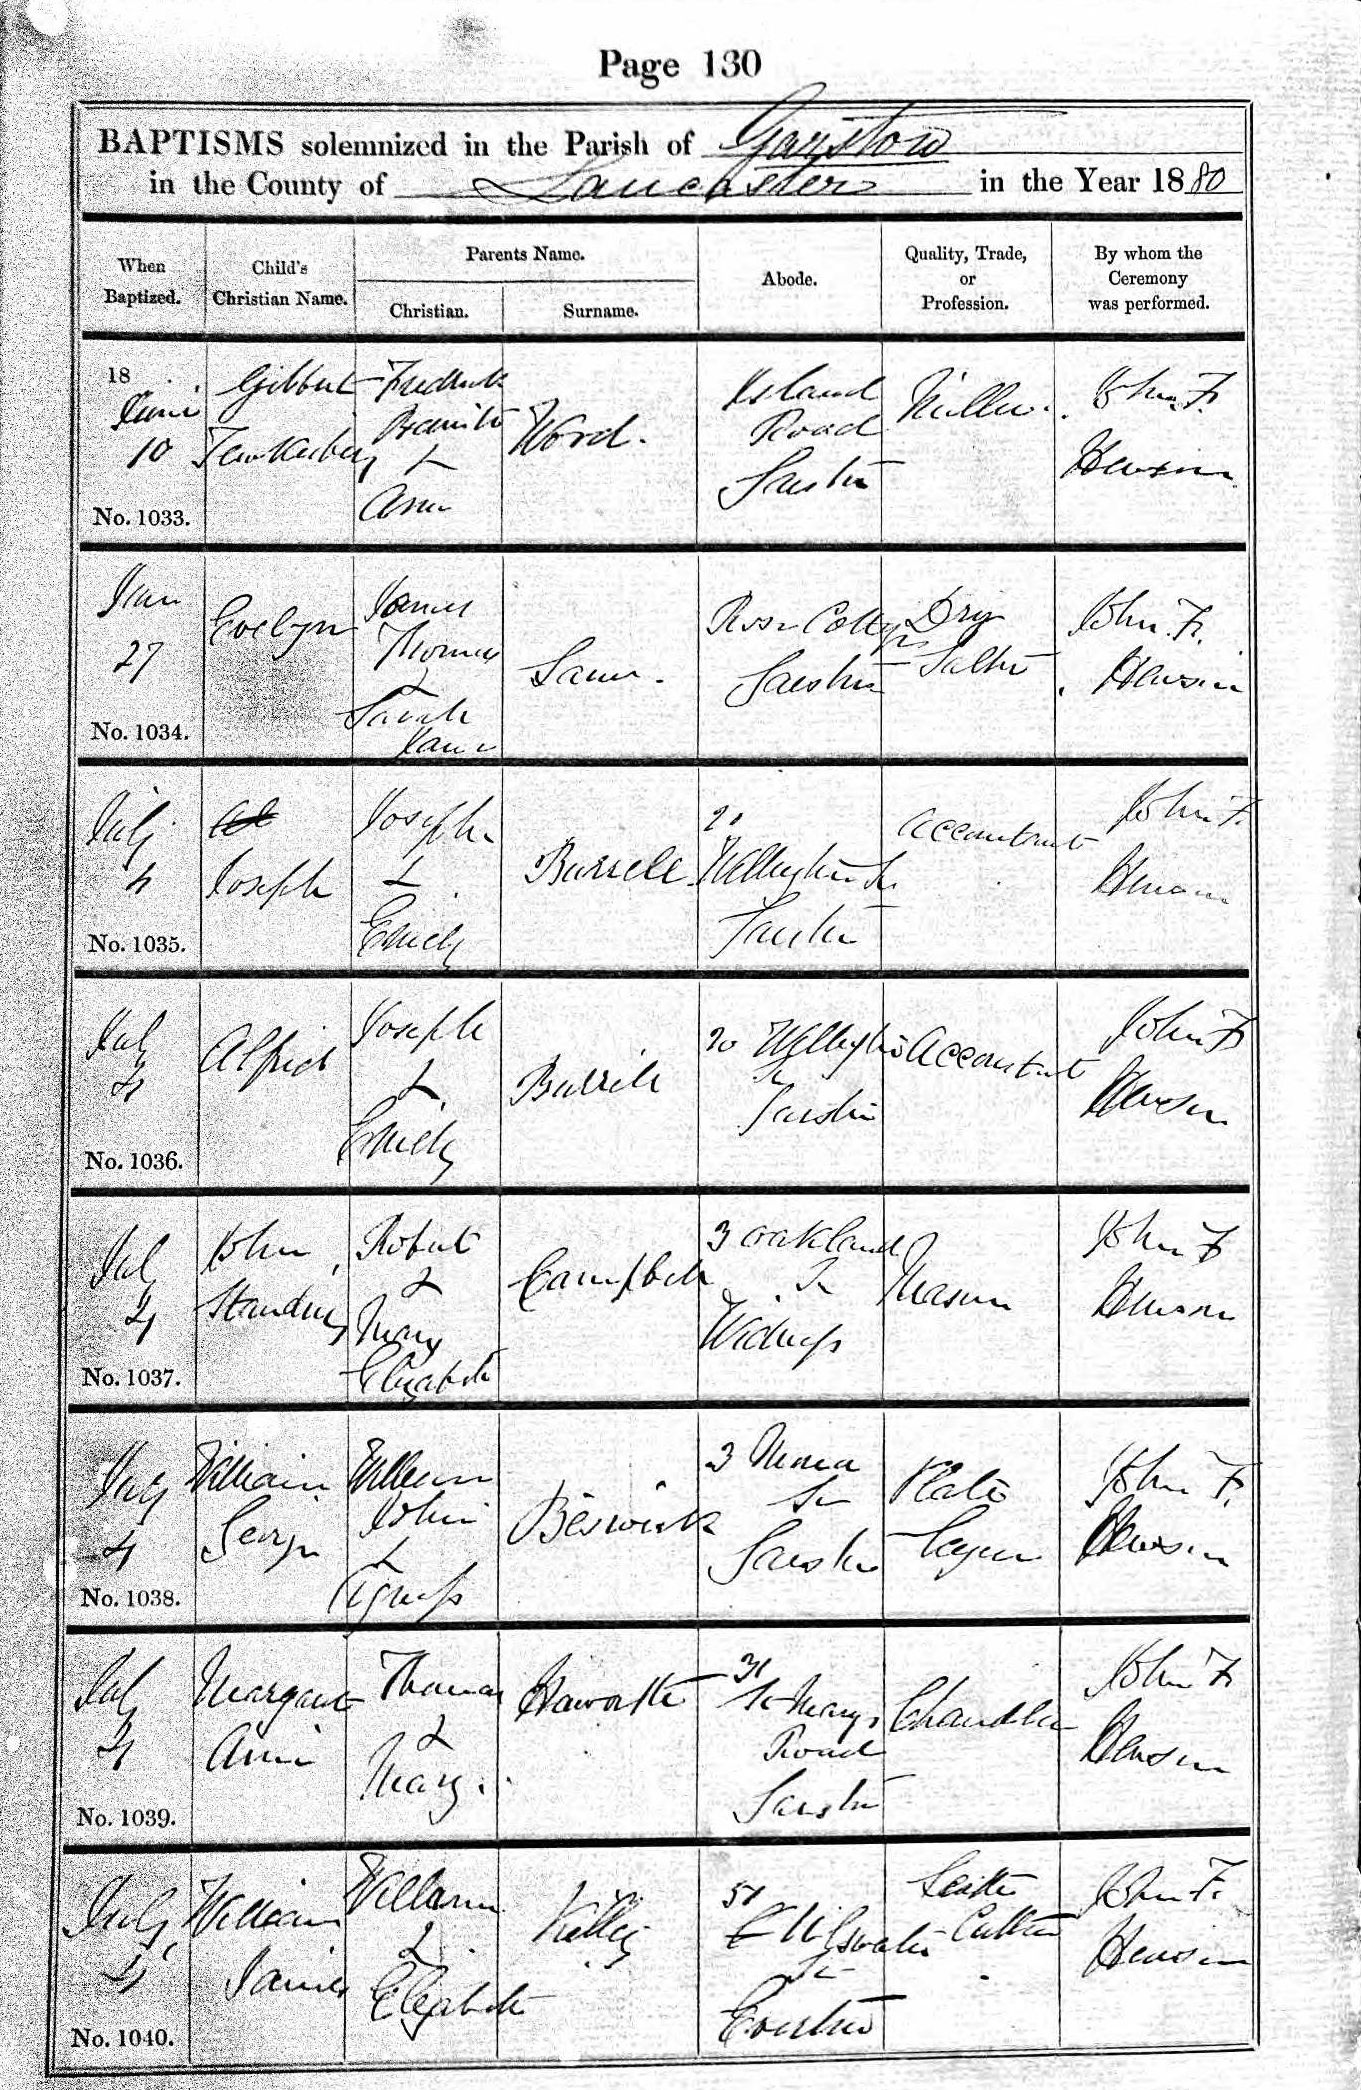 Page 130
BAPTISMS solemnized in the Parish of Garston
in the County of Lancaster in the Year 1880
When Baptized.
Child's Christian Name.
Parents Name.
Christian.
Surname.
Abode.
Quality, Trade, or Profession.
By whom the Ceremony was performed.
18
June
10
No. 1033.
Gilbert
Fredrick
&
Ann
Word.
Island
Road
Garston
Miller.
John F.
Hewson
June
27
No. 1034.
Evelyn
James
Thomas
&
Sarah
Jane
Garston
Dry
Salter
John F.
Hewson
July
4
No. 1035.
Joseph
Joseph
&
Emily
Burrell
20
Wellington St
Garston
Accountant
John F.
Hewson
July
4
No. 1036.
Alfred
Joseph
&
Emily
Burrell
20 Wellington
St
Garston
Accountant
John F
Hewson
July
4
No. 1037.
John
Standing
Robert
&
Mary
Elizabeth
Campbell
3 Oakland
St
Widness
Mason
John F
Hewson
July
4
No. 1038.
William
George
William
John
&
Agness
Beswick
3
St
Garston
Plate
Layer
John F.
Hewson
July
4
No. 1039.
Margaret
Ann
Thomas
&
Mary.
Haworth
31
St Marys
Road
Garston
Chandler
John F
Hewson
July
4
No. 1040.
William
James
William
&
Elizabeth
Kelley
51
St
Everton
Cutter
John F.
Hewson